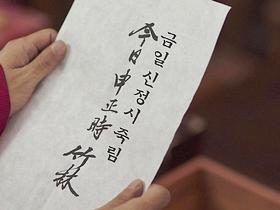 금일 신정시 죽림
今日 申正時 竹林